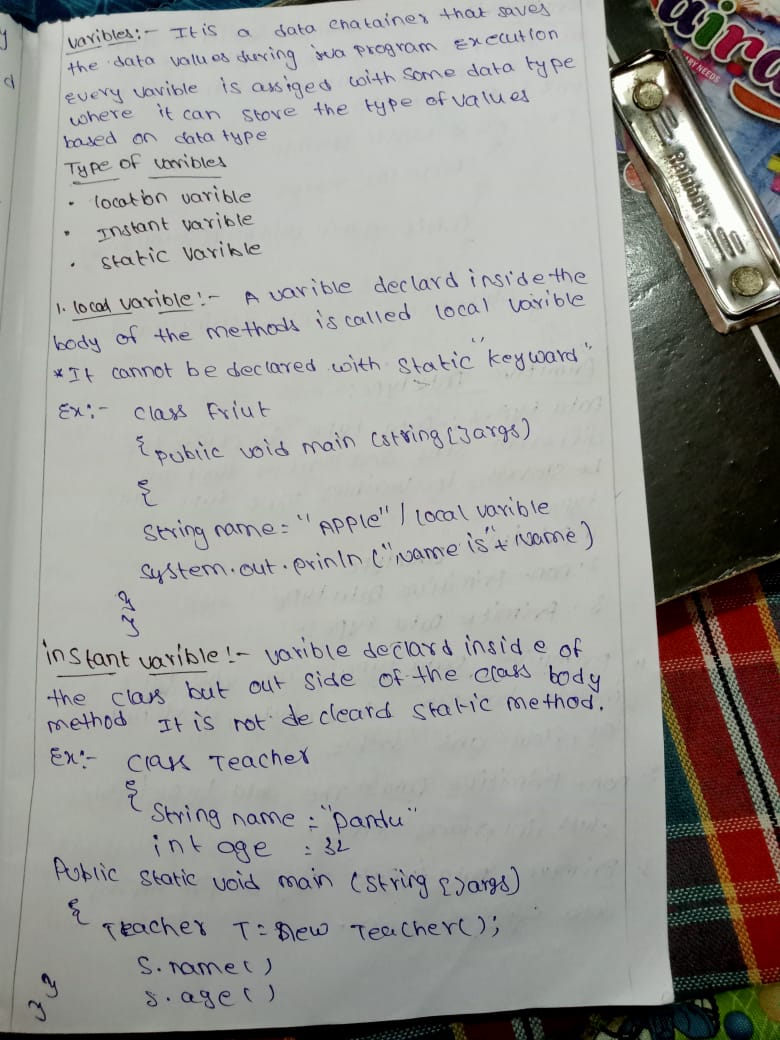 varibles:- It is a data chatainer that saves
the data values during java program execution
every varible is assiged with some data type
where it can store the type of values
based on data type
Type of varibles
• location varible
• Instant varible
• static varible
1. local varible:- A varible declard inside the
body of the methods is called local varible
*It cannot be declared with static "keyward"
Ex:- class Friut
{ public void main (string[]args)
{
String name = "Apple" / local varible
System.out.prinln ("Name is"+ Name)
}
}
instant varible:- varible declard inside of
the class but out side of the class body
method It is not decleard static method.
Ex:- class Teacher
{
String name = "pandu"
int age = 32
Public static void main (string []args)
{
Teacher T = new Teacher();
S.name()
S.age()
}}
Rainbow